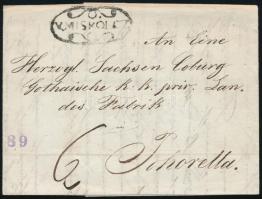 V. MISKOLCZ
An Eine
Herzogl. Sachsen Coburg
Gothaische k. k. priv. Lan-
des Fabrik
6 Jhoretta.
89